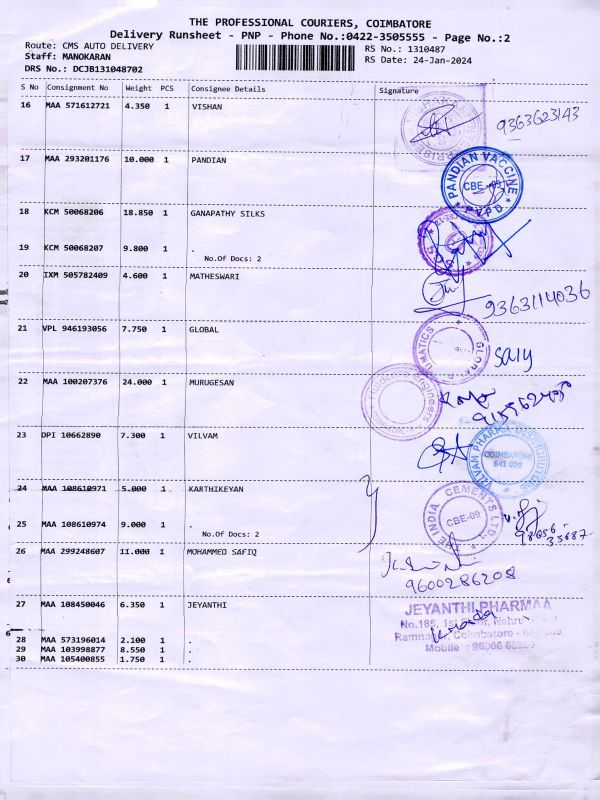 THE PROFESSIONAL COURIERS, COIMBATORE
Delivery Runsheet - PNP - Phone No.:0422-3505555 - Page No.:2
Route: CMS AUTO DELIVERY RS No.: 1310487
Staff: MANOKARAN RS Date: 24-Jan-2024
DRS No.: DCJB131048702
S No Consignment No Weight PCS Consignee Details Signature
16 MAA 571612721 4.350 1 VISHAN
9363623143
17 MAA 293201176 10.000 1 PANDIAN
PANDIAN VACCINE
CBE -09
PVPD
18 KCM 50068206 18.850 1 GANAPATHY SILKS
19 KCM 50068207 9.800 1 .
No.Of Docs: 2
20 IXM 505782409 4.600 1 MATHESWARI
9363114036
21 VPL 946193056 7.750 1 GLOBAL
22 MAA 100207376 24.000 1 MURUGESAN
23 DPI 10662890 7.300 1 VILVAM
VILVAM PHARMA DISTRIBUTORS
COIMBATORE
641 009
24 MAA 108610971 5.000 1 KARTHIKEYAN
INDIA CEMENTS LTD.
CBE-09
25 MAA 108610974 9.000 1 .
No.Of Docs: 2
26 MAA 299248607 11.000 1 MOHAMMED SAFIQ
9600286208
27 MAA 108450046 6.350 1 JEYANTHI
JEYANTHI PHARMAA
No.185, 1st Floor, Nehru
Ramnagar, Coimbatore - 641 009
Mobile :
28 MAA 573196014 2.100 1 .
29 MAA 103998877 8.550 1 .
30 MAA 105400855 1.750 1 .